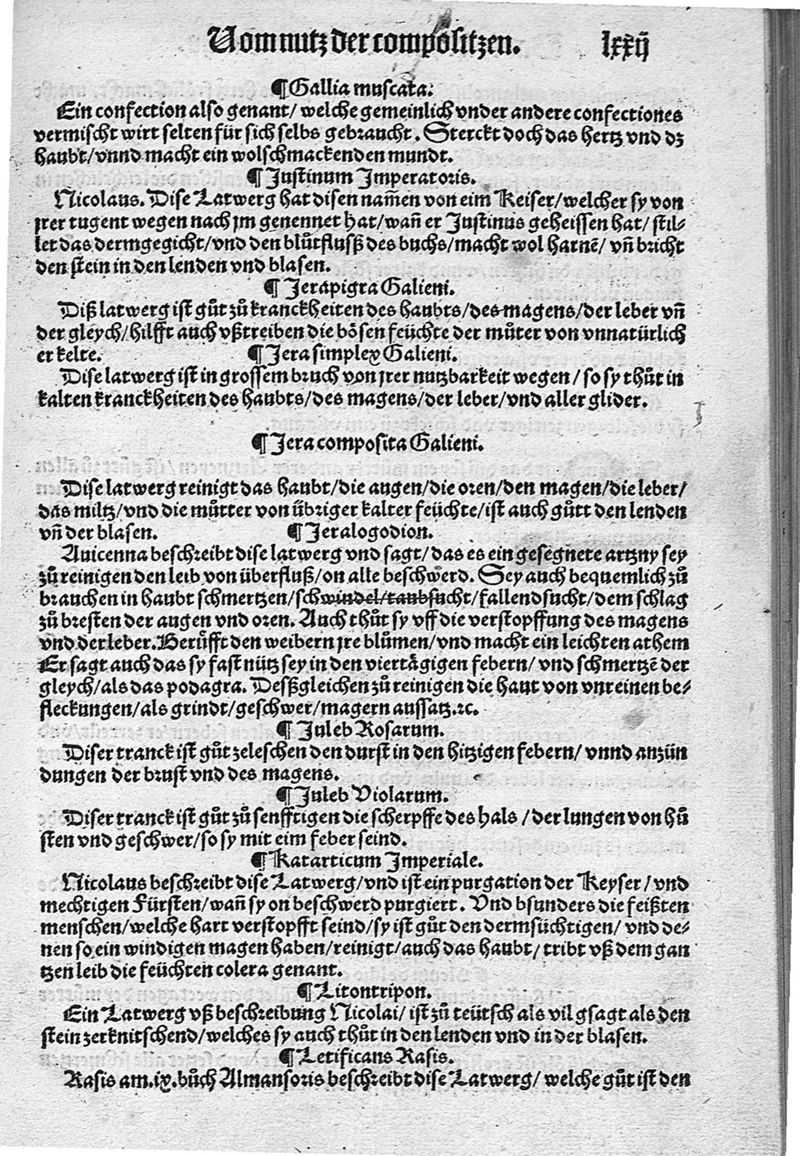 Vom nutz der compositzen. lxxij
¶ Gallia muscata.
Ein confection also genant/ welche gemeinlich vnder andere confectiones
vermischt wirt selten für sich selbs gebraucht. Sterckt doch das hertz vnd dz
haubt/vnnd macht ein wolschmackenden mundt.
¶ Justinum Imperatoris.
Nicolaus. Dise Latwerg hat disen nam̃en von eim Keiser/welcher sy von
jrer tugent wegen nach jm genennet hat/wañ er Justinus geheissen hat/ stil-
let das dermgegicht/vnd den blůtfluß des buchs/macht wol harnẽ/ vñ bricht
den stein in den lenden vnd blasen.
¶ Jerapigra Galieni.
Diß latwerg ist gůt zů kranckheiten des haubts/des magens/der leber vñ
der gleych/hilfft auch vßtreiben die bösen feüchte der můter von vnnatürlich
er kelte. ¶ Jera simplex Galieni.
Dise latwerg ist in grossem bruch von jrer nutzbarkeit wegen/ so sy thůt in
kalten kranckheiten des haubts/des magens/der leber/vnd aller glider.
¶ Jera composita Galieni.
Dise latwerg reinigt das haubt/die augen/die oren/den magen/die leber/
das miltz/vnd die můtter von übriger kalter feüchte/ist auch gůtt den lenden
vñ der blasen. ¶ Jeralogodion.
Auicenna beschreibt dise latwerg vnd sagt/das es ein gesegnete artzny sey
zů reinigen den leib von überfluß/on alle beschwerd. Sey auch bequemlich zů
brauchen in haubt schmertzen/schwindel/taubsucht/fallendsucht/dem schlag
zů bresten der augen vnd oren. Auch thůt sy vff die verstopffung des magens
vnd der leber. Berůfft den weibern jre blůmen/vnd macht ein leichten athem
Er sagt auch das sy fast nütz sey in den viertägigen febern/ vnd schmertzẽ der
gleych/als das podagra. Deßgleichen zů reinigen die haut von vnreinen be-
fleckungen/als grindt/geschwer/magern aussatz.ꝛc.
¶ Juleb Rosarum.
Diser tranck ist gůt zeleschen den durst in den hitzigen febern/ vnnd anzün
dungen der brust vnd des magens.
¶ Juleb Violarum.
Diser tranck ist gůt zů senfftigen die scherpffe des hals /der lungen von hů
sten vnd geschwer/so sy mit eim feber seind.
¶ Katarticum Imperiale.
Nicolaus beschreibt dise Latwerg/vnd ist ein purgation der Keyser/ vnd
mechtigen Fürsten/wañ sy on beschwerd purgiert. Vnd bsunders die feißten
menschen/welche hart verstopfft seind/sy ist gůt den dermsüchtigen/ vnd de-
nen so ein windigen magen haben/reinigt/auch das haubt/ tribt vß dem gan
tzen leib die feüchten colera genant.
¶ Litontripon.
Ein Latwerg vß beschreibung Nicolai/ ist zů teütsch als vil gsagt als den
stein zerknitschend/welches sy auch thůt in den lenden vnd in der blasen.
¶ Letificans Rasis.
Rasis am .ix. bůch Almansoris beschreibt dise Latwerg/ welche gůt ist den